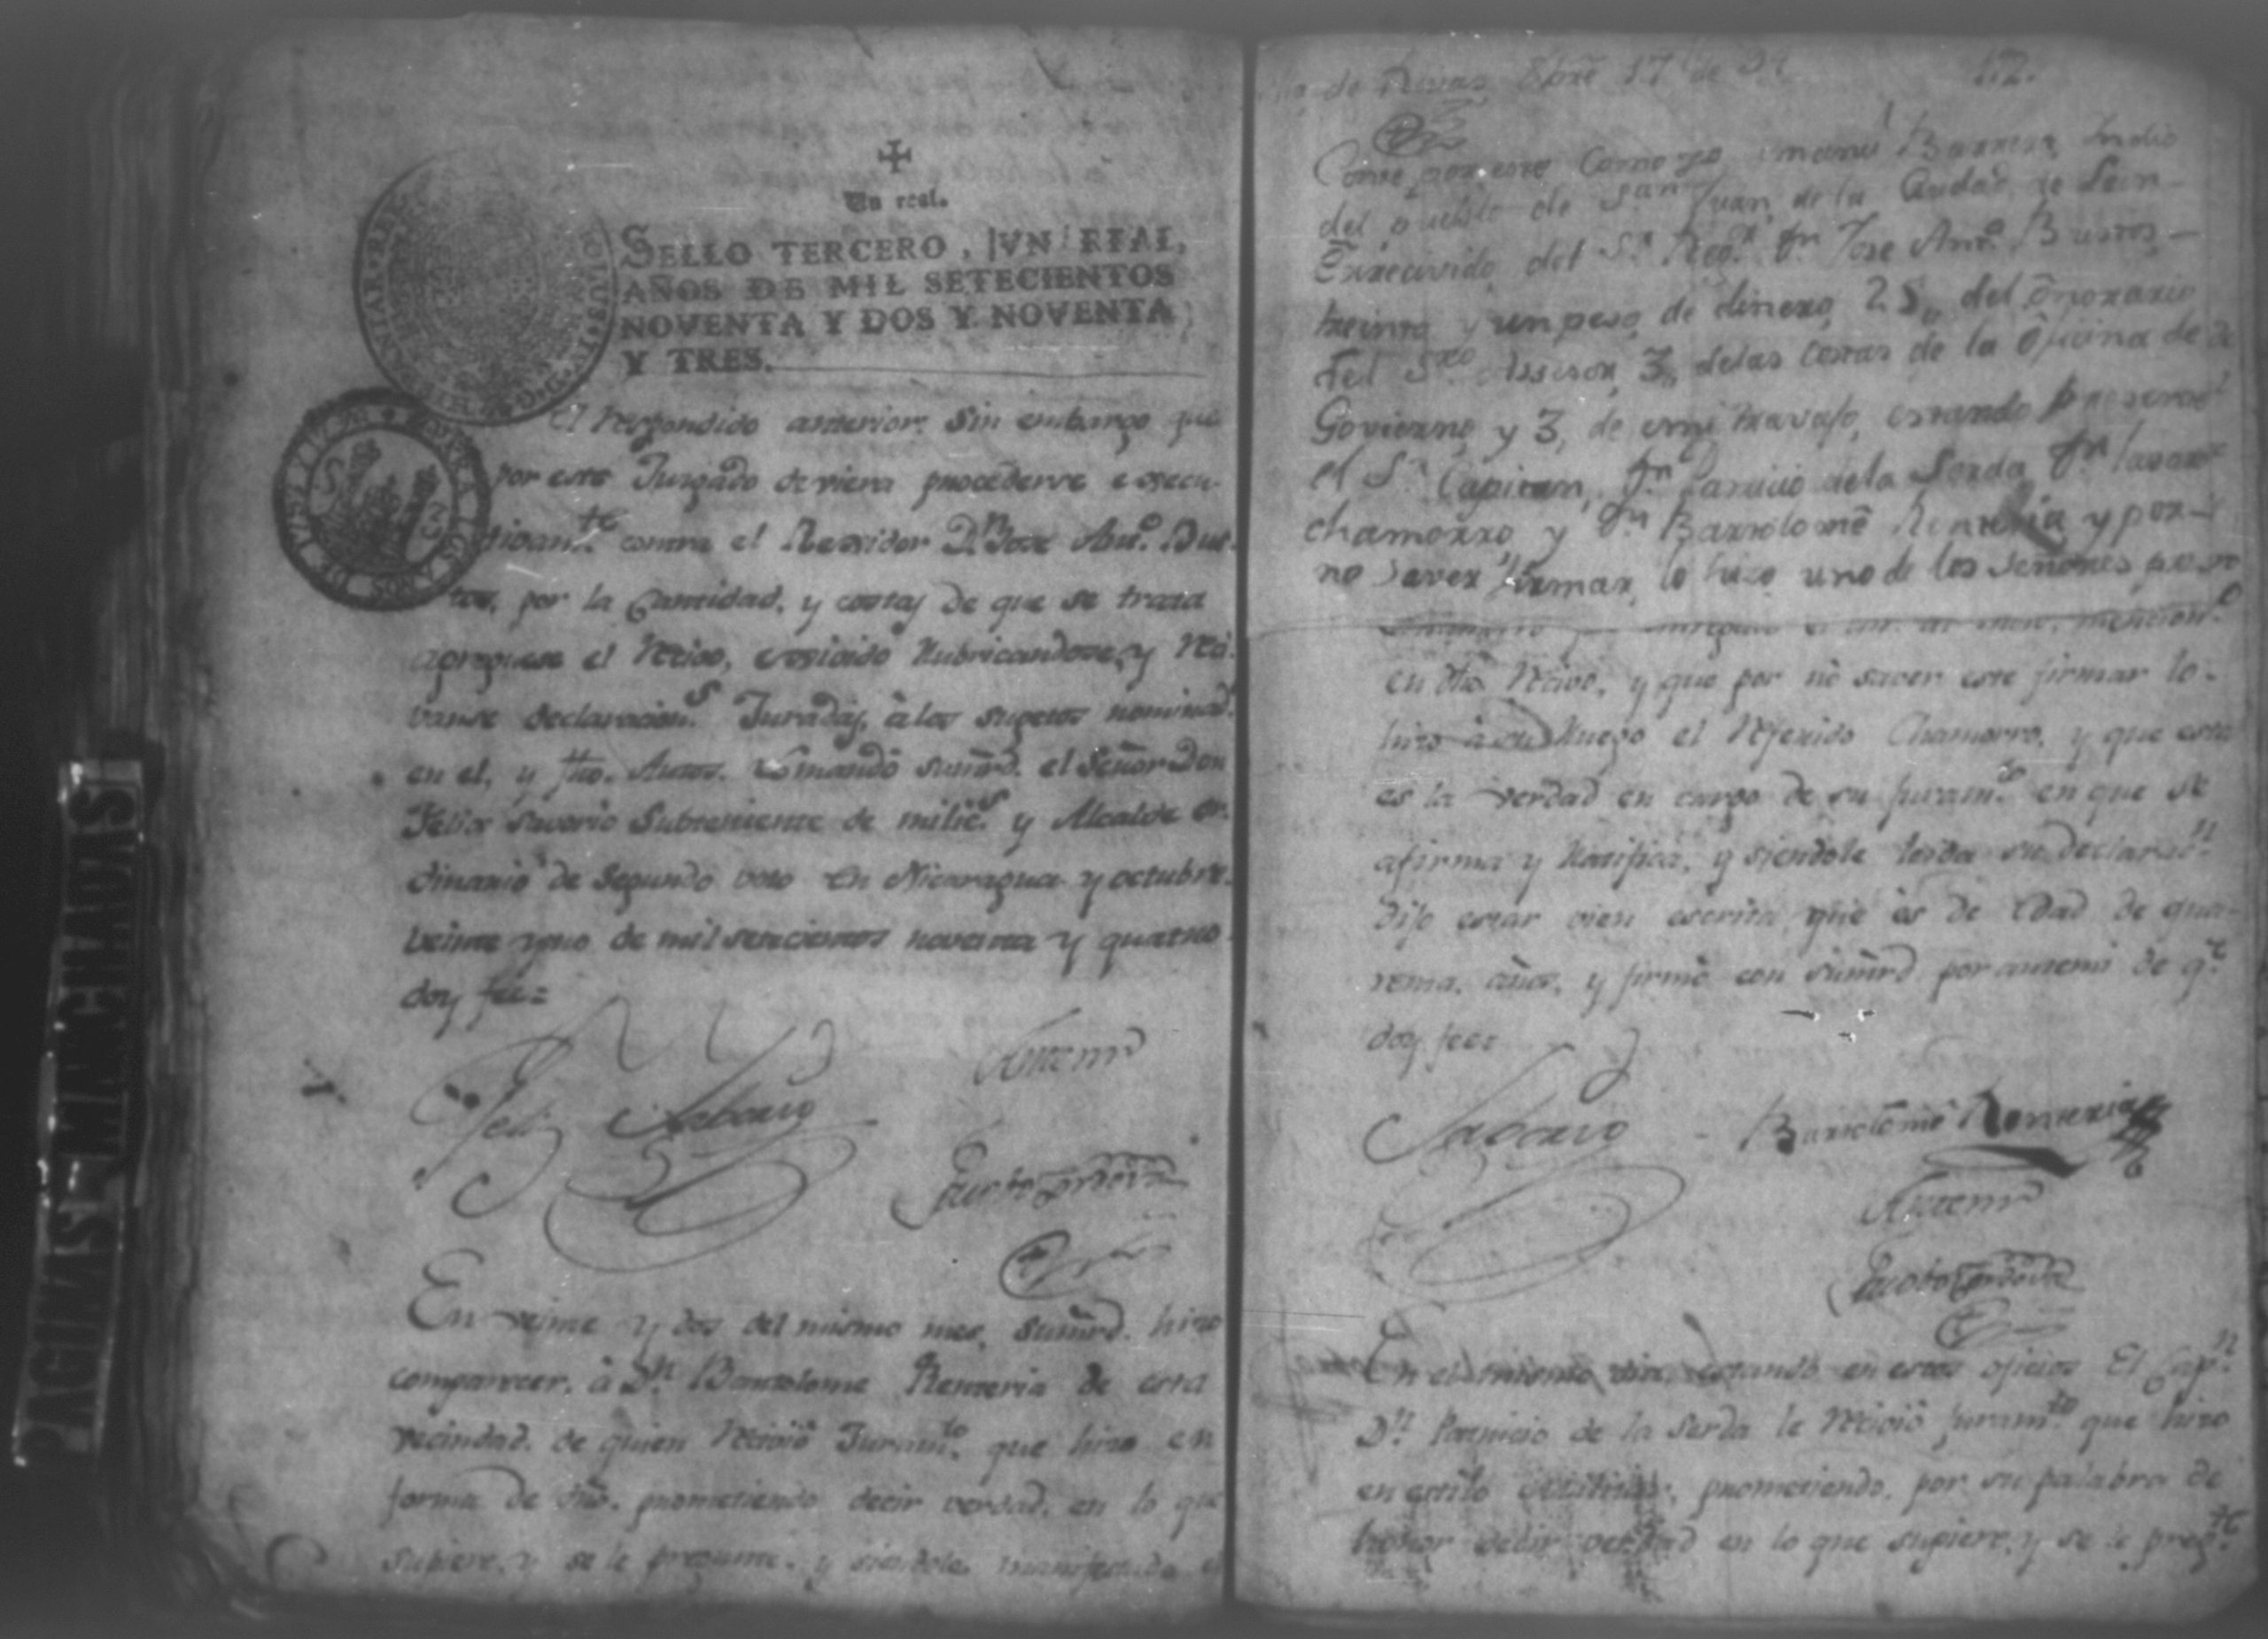 Un real.
SELLO TERCERO, VN REAL,
AÑOS DE MIL SETECIENTOS
NOVENTA Y DOS Y NOVENTA
Y TRES.
El Respondido anterior: Sin embargo que
por este Juzgado deviera procederse execu-
tivam.te contra el Rexidor D.n Jose Ant.o Bus-
tos, por la Cantidad, y costas de que se trata
agreguese el Recivo, rubricandose, y Reci-
vanse declaracion.s Juradas, à los sugetos nominad.s
en el, y fho. Autos. Lo mandó sumrd. el Señor Don
Felix Saborio Subteniente de milic.s y Alcalde or-
dinario de segundo voto en Nicaragua y octubre
veinte y uno de mil setecientos noventa y quatro
doy fee=
Felix Saborio
Antemi
En veinte y dos del mismo mes, sumrd. hizo
comparecer, à D.n Bartolome Renteria de esta
vecindad, de quien Recivió Juram.to que hizo en
forma de dro. prometiendo decir verdad, en lo que
supiere, y se le pregunte, y siendole manifestado el
de Rivas 8bre 17 de 94
Conste por este Como yo Barrera Indio
del pueblo de San Juan de la Ciudad de Leon
E rrecivido del S.r Reg.r D.n Jose Ant.o Bustos
treinta y un peso de dinero, 25, del Onorario
del S.or Assesor, 3, delas costas de la Oficina de
Govierno, y 3, de mi travajo, estando presente
el S.r Capitan, D.n Patricio dela Serda, D.n
chamorro y D.n Bartolomè Renteria y por
no saver firmar, lo hizo uno de los señores
en dho Recivo, y que por no saver este firmar lo
hizo à su Ruego el Referido Chamorro, y que esta
es la verdad en cargo de su juram.to en que se
afirma y Ratifica, y siendole leida su declarac.n
dijo estar bien escrita, que es de edad de qua-
renta, años, y firmò con sumrd. por antemi de q.e
doy fee=
Saborio
Bartolomè Renteria
Antemi
En el mismo dia estando en estos oficios El Cap.n
D.n Patricio de la Serda le Recivió juram.to que hizo
en estilo militar, prometiendo, por su palabra de
honor decir verdad en lo que supiere, y se le preg.te
PAGINAS MANCHADAS